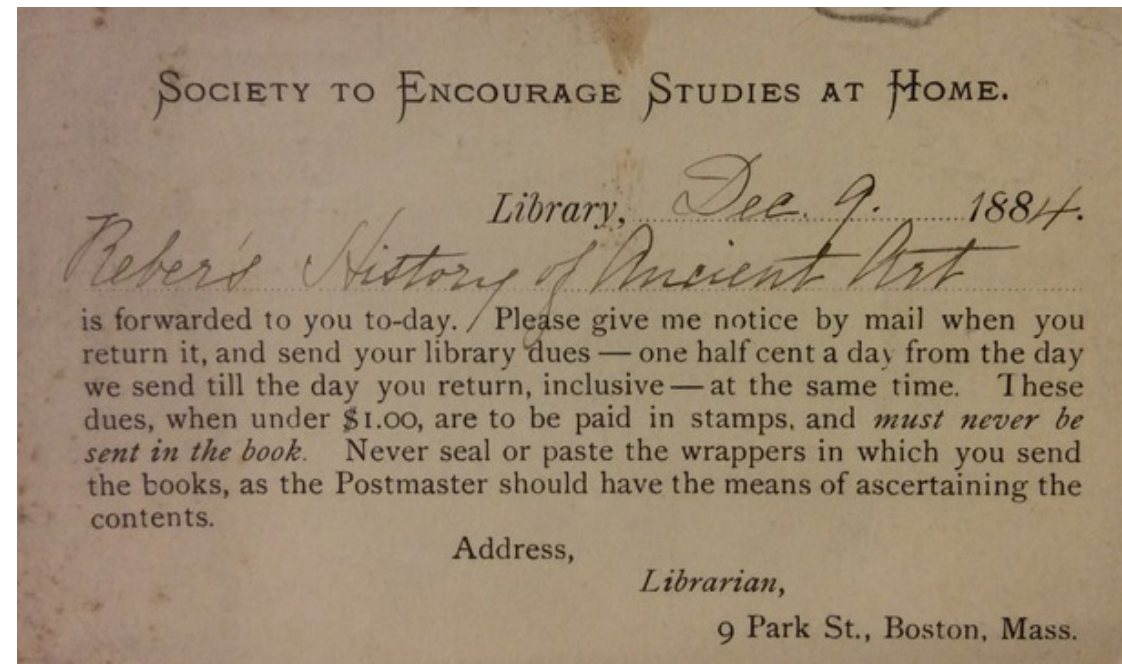 SOCIETY TO ENCOURAGE STUDIES AT HOME.
Library, Dec. 9. 1884.
Reber's History of Ancient Art
is forwarded to you to-day. Please give me notice by mail when you
return it, and send your library dues — one half cent a day from the day
we send till the day you return, inclusive — at the same time. These
dues, when under $1.00, are to be paid in stamps, and must never be
sent in the book. Never seal or paste the wrappers in which you send
the books, as the Postmaster should have the means of ascertaining the
contents.
Address,
Librarian,
9 Park St., Boston, Mass.